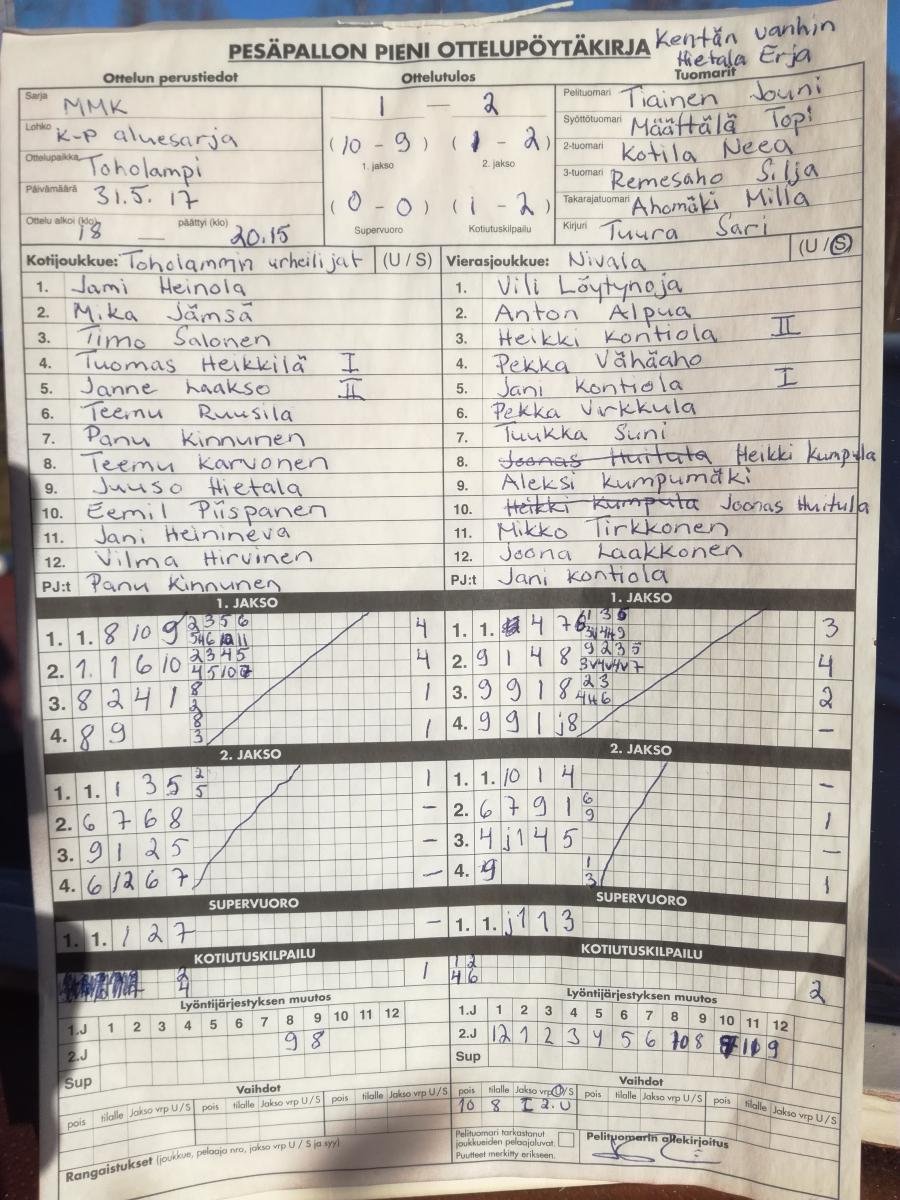 PESÄPALLON PIENI OTTELUPÖYTÄKIRJA Kentän vanhin
Hietala Erja
Ottelun perustiedot Ottelutulos Tuomarit
Sarja MMK
Lohko K-p aluesarja
Ottelupaikka Toholampi
Päivämäärä 31.5.17
Ottelu alkoi (klo) 18 — päättyi (klo) 20.15
1 — 2
(10 - 9) (1 - 2)
1. jakso 2. jakso
(0 - 0) (1 - 2)
Supervuoro Kotiutuskilpailu
Pelituomari Tiainen Jouni
Syöttötuomari Määttälä Topi
2-tuomari Kotila Neea
3-tuomari Remesaho Silja
Takarajatuomari Ahomäki Milla
Kirjuri Tuura Sari
Kotijoukkue: Toholammin urheilijat (U / S)
1. Jami Heinola
2. Mika Jämsä
3. Timo Salonen
4. Tuomas Heikkilä I
5. Janne Laakso II
6. Teemu Ruusila
7. Panu Kinnunen
8. Teemu Karvonen
9. Juuso Hietala
10. Eemil Piispanen
11. Jani Heinineva
12. Vilma Hirvinen
PJ:t Panu Kinnunen
Vierasjoukkue: Nivala (U / S)
1. Vili Löytynoja
2. Anton Alpua
3. Heikki Kontiola II
4. Pekka Vähäaho
5. Jani Kontiola I
6. Pekka Virkkula
7. Tuukka Suni
8. Joonas Huitula Heikki Kumpula
9. Aleksi Kumpumäki
10. Heikki Kumpula Joonas Huitula
11. Mikko Tirkkonen
12. Joona Laakkonen
PJ:t Jani Kontiola
1. JAKSO
1. 1. 8 10 9 2 3 5 6 4
2. 1 1 6 10 2 3 4 5 4
3. 8 2 4 1 8 2 1
4. 8 9 8 3 1
2. JAKSO
1. 1. 1 3 5 2 5 1
2. 6 7 6 8 –
3. 9 1 2 5 –
4. 6 12 6 7 –
SUPERVUORO
1. 1. 1 2 7 –
KOTIUTUSKILPAILU
2 4 1
1. JAKSO
1. 1. 4 7 3
2. 9 1 4 8 9 2 3 5 4
3. 9 9 1 8 2 3 2
4. 9 9 1 j8 –
2. JAKSO
1. 1. 10 1 4 –
2. 6 7 9 1 6 9 1
3. 4 j1 4 5 –
4. 9 1 3 1
SUPERVUORO
1. 1. j1 1 3
KOTIUTUSKILPAILU
1 2
4 6
2
Lyöntijärjestyksen muutos
1.J 1 2 3 4 5 6 7 8 9 10 11 12
2.J 9 8
Sup
Lyöntijärjestyksen muutos
1.J 1 2 3 4 5 6 7 8 9 10 11 12
2.J 12 1 2 3 4 5 6 7 8 11 9
Sup
Vaihdot
pois tilalle Jakso vrp U / S pois tilalle Jakso vrp U / S pois tilalle Jakso vrp U / S
Vaihdot
pois tilalle Jakso vrp U / S pois tilalle Jakso vrp U / S pois tilalle Jakso vrp U / S
10 8 I 2. U
Rangaistukset (joukkue, pelaaja nro, jakso vrp U / S ja syy)
Pelituomari tarkastanut
joukkueiden pelaajaluvat.
Puutteet merkitty erikseen.
Pelituomarin allekirjoitus